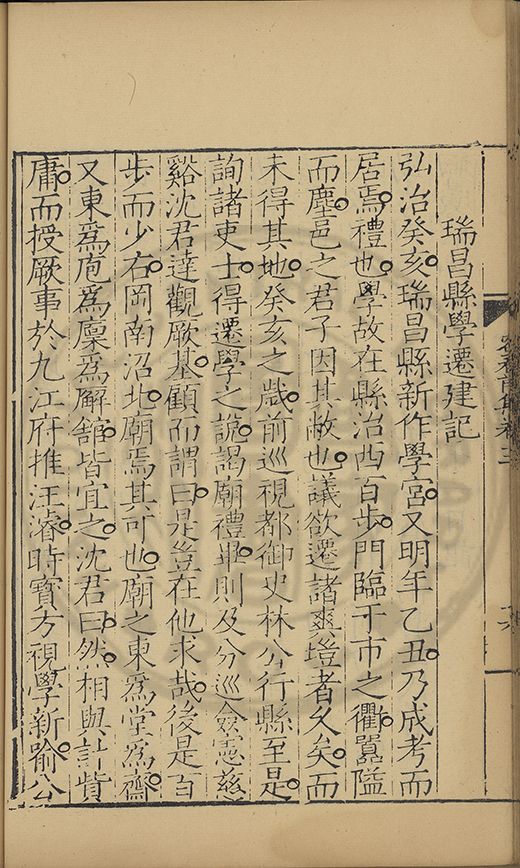 瑞昌縣學遷建記
弘治癸亥瑞昌縣新作學宮又明年乙丑乃成考而
居焉禮也學故在縣治西百步門臨于市之衢囂隘
而塵邑之君子因其敝也議欲遷諸爽塏者久矣而
未得其地癸亥之歲前巡視都御史林公行縣至是
詢諸吏士得遷學之說謁廟禮畢則及分巡僉憲慈
谿沈君達觀厥基顧而謂曰是豈在他求哉後是百
步而少右岡南沼北廟焉其可也廟之東爲堂爲齋
又東爲庖爲廩爲解舘皆宜之沈君曰然相與計貲
庸而授厥事於九江府推汪濬時寶方視學新喻公